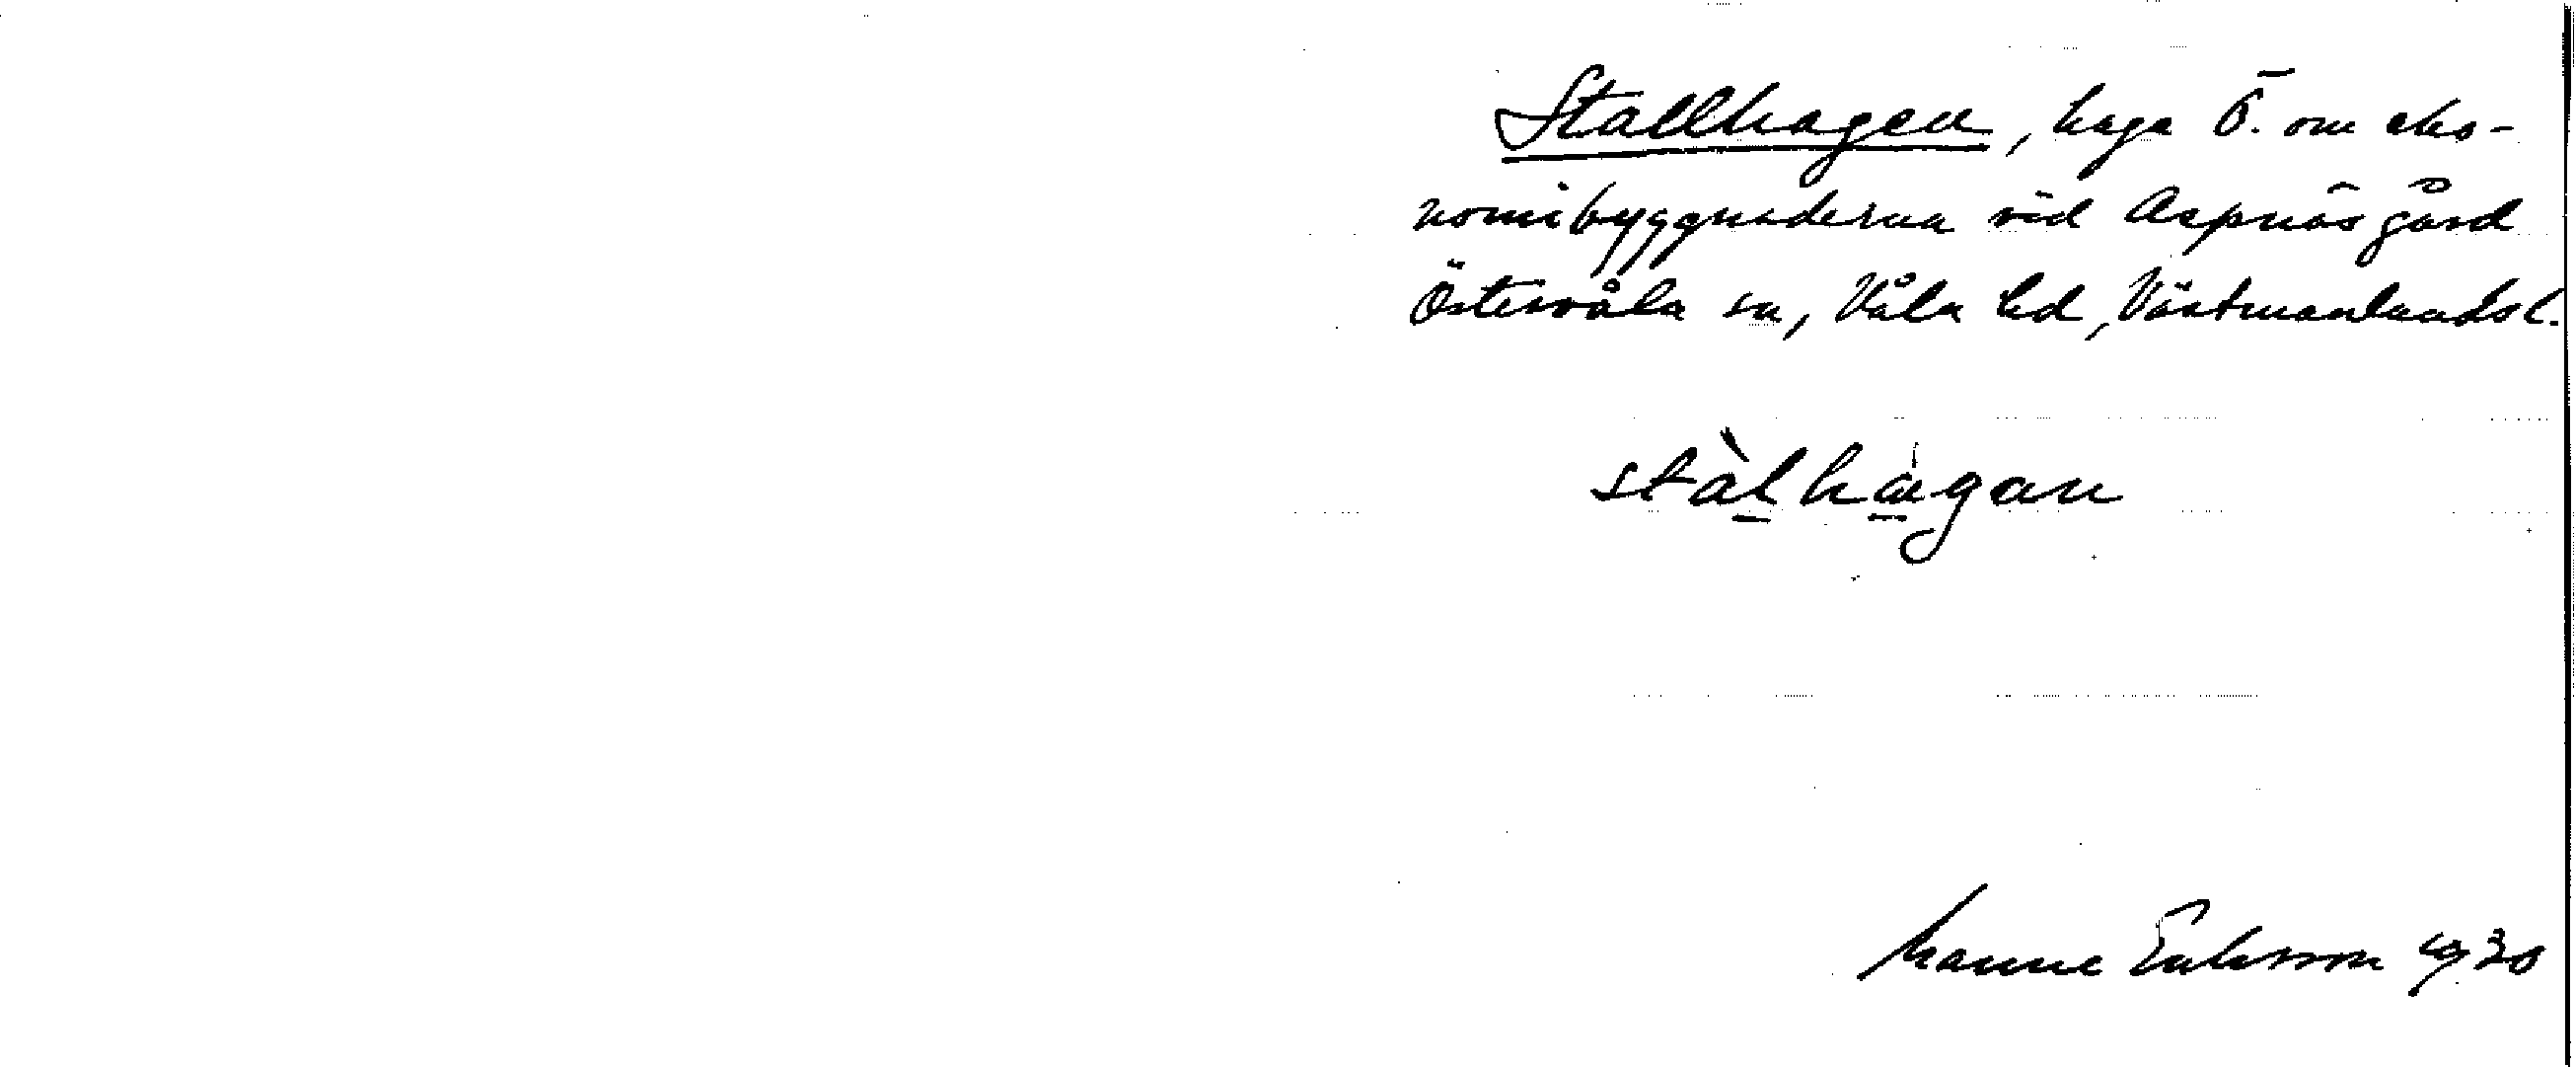 Stallhagen, hage Ö. om eko-
nomibyggnaderna vid Aspnäs gård
Östervåla sn, Våla hd, Västmanlands l.
stàlhàgan
Manne Eriksson 1930